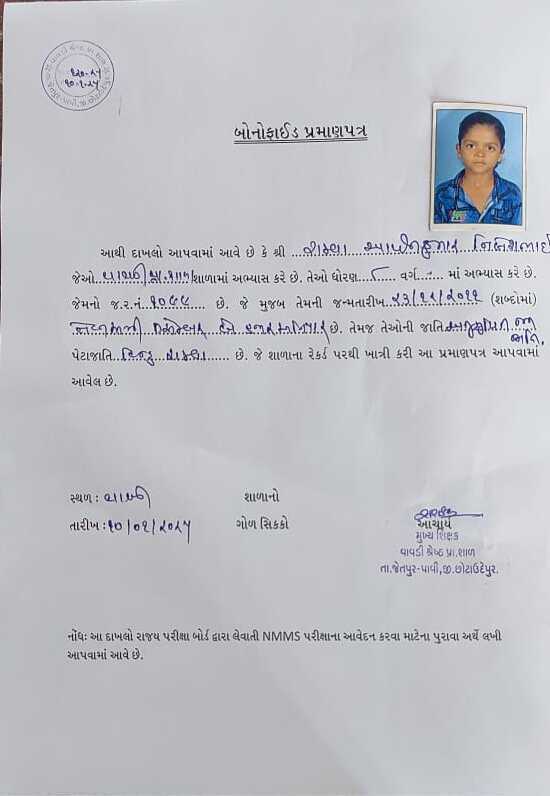 બોનોફાઈડ પ્રમાણપત્ર
આથી દાખલો આપવામાં આવે છે કે શ્રી
જેઓ વાવડી પ્રા.શાળા શાળામાં અભ્યાસ કરે છે. તેઓ ધોરણ ૮ વર્ગ માં અભ્યાસ કરે છે.
જેમનો જ.ર.નં. છે. જે મુજબ તેમની જન્મતારીખ ૨૩/૧૨/૨૦૧૧ (શબ્દોમાં)
છે. તેમજ તેઓની જાતિ
પેટાજાતિ હિન્દુ છે. જે શાળાના રેકર્ડ પરથી ખાત્રી કરી આ પ્રમાણપત્ર આપવામાં
આવેલ છે.
સ્થળ : વાવડી
શાળાનો
તારીખ : ૧૦/૦૧/૨૦૨૫
ગોળ સિક્કો
આચાર્ય
મુખ્ય શિક્ષક
વાવડી શ્રેષ્ઠ પ્રા.શાળ
તા.જેતપુર-પાવી,જી.છોટાઉદેપુર.
નોંધઃ આ દાખલો રાજ્ય પરીક્ષા બોર્ડ દ્વારા લેવાતી NMMS પરીક્ષાના આવેદન કરવા માટેના પુરાવા અર્થે લખી
આપવામાં આવે છે.